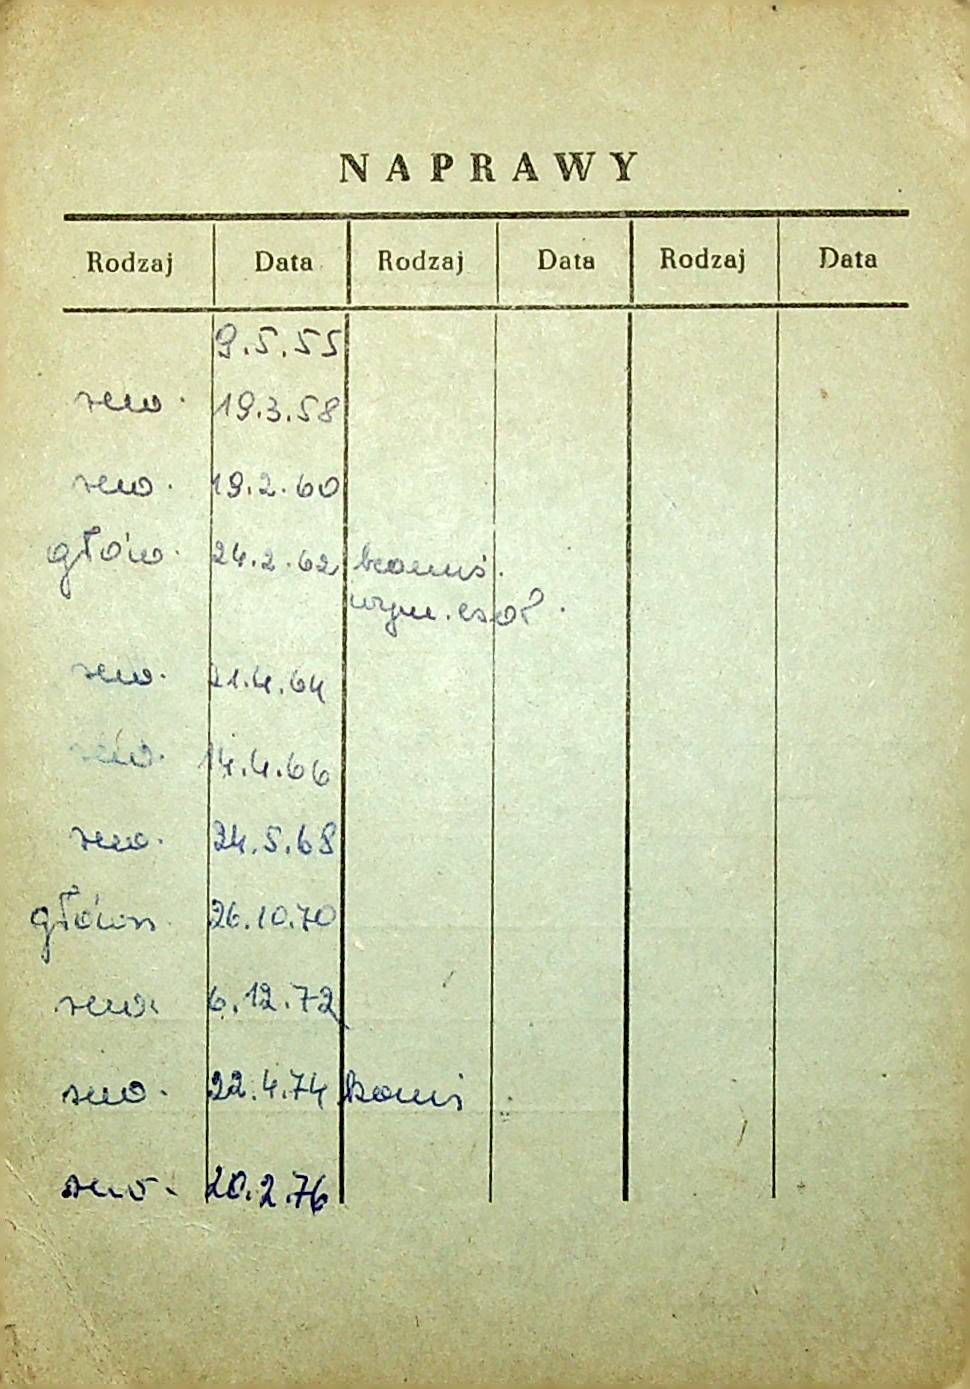 NAPRAWY
Rodzaj Data Rodzaj Data Rodzaj Data
9.5.55
rew. 19.3.58
rew. 19.2.60
głów. 24.2.62
wym.
rew. 21.4.64
rew. 14.4.66
rew. 24.5.68
główn 26.10.70
rew. 6.12.72
rew. 22.4.74
rew. 20.2.76